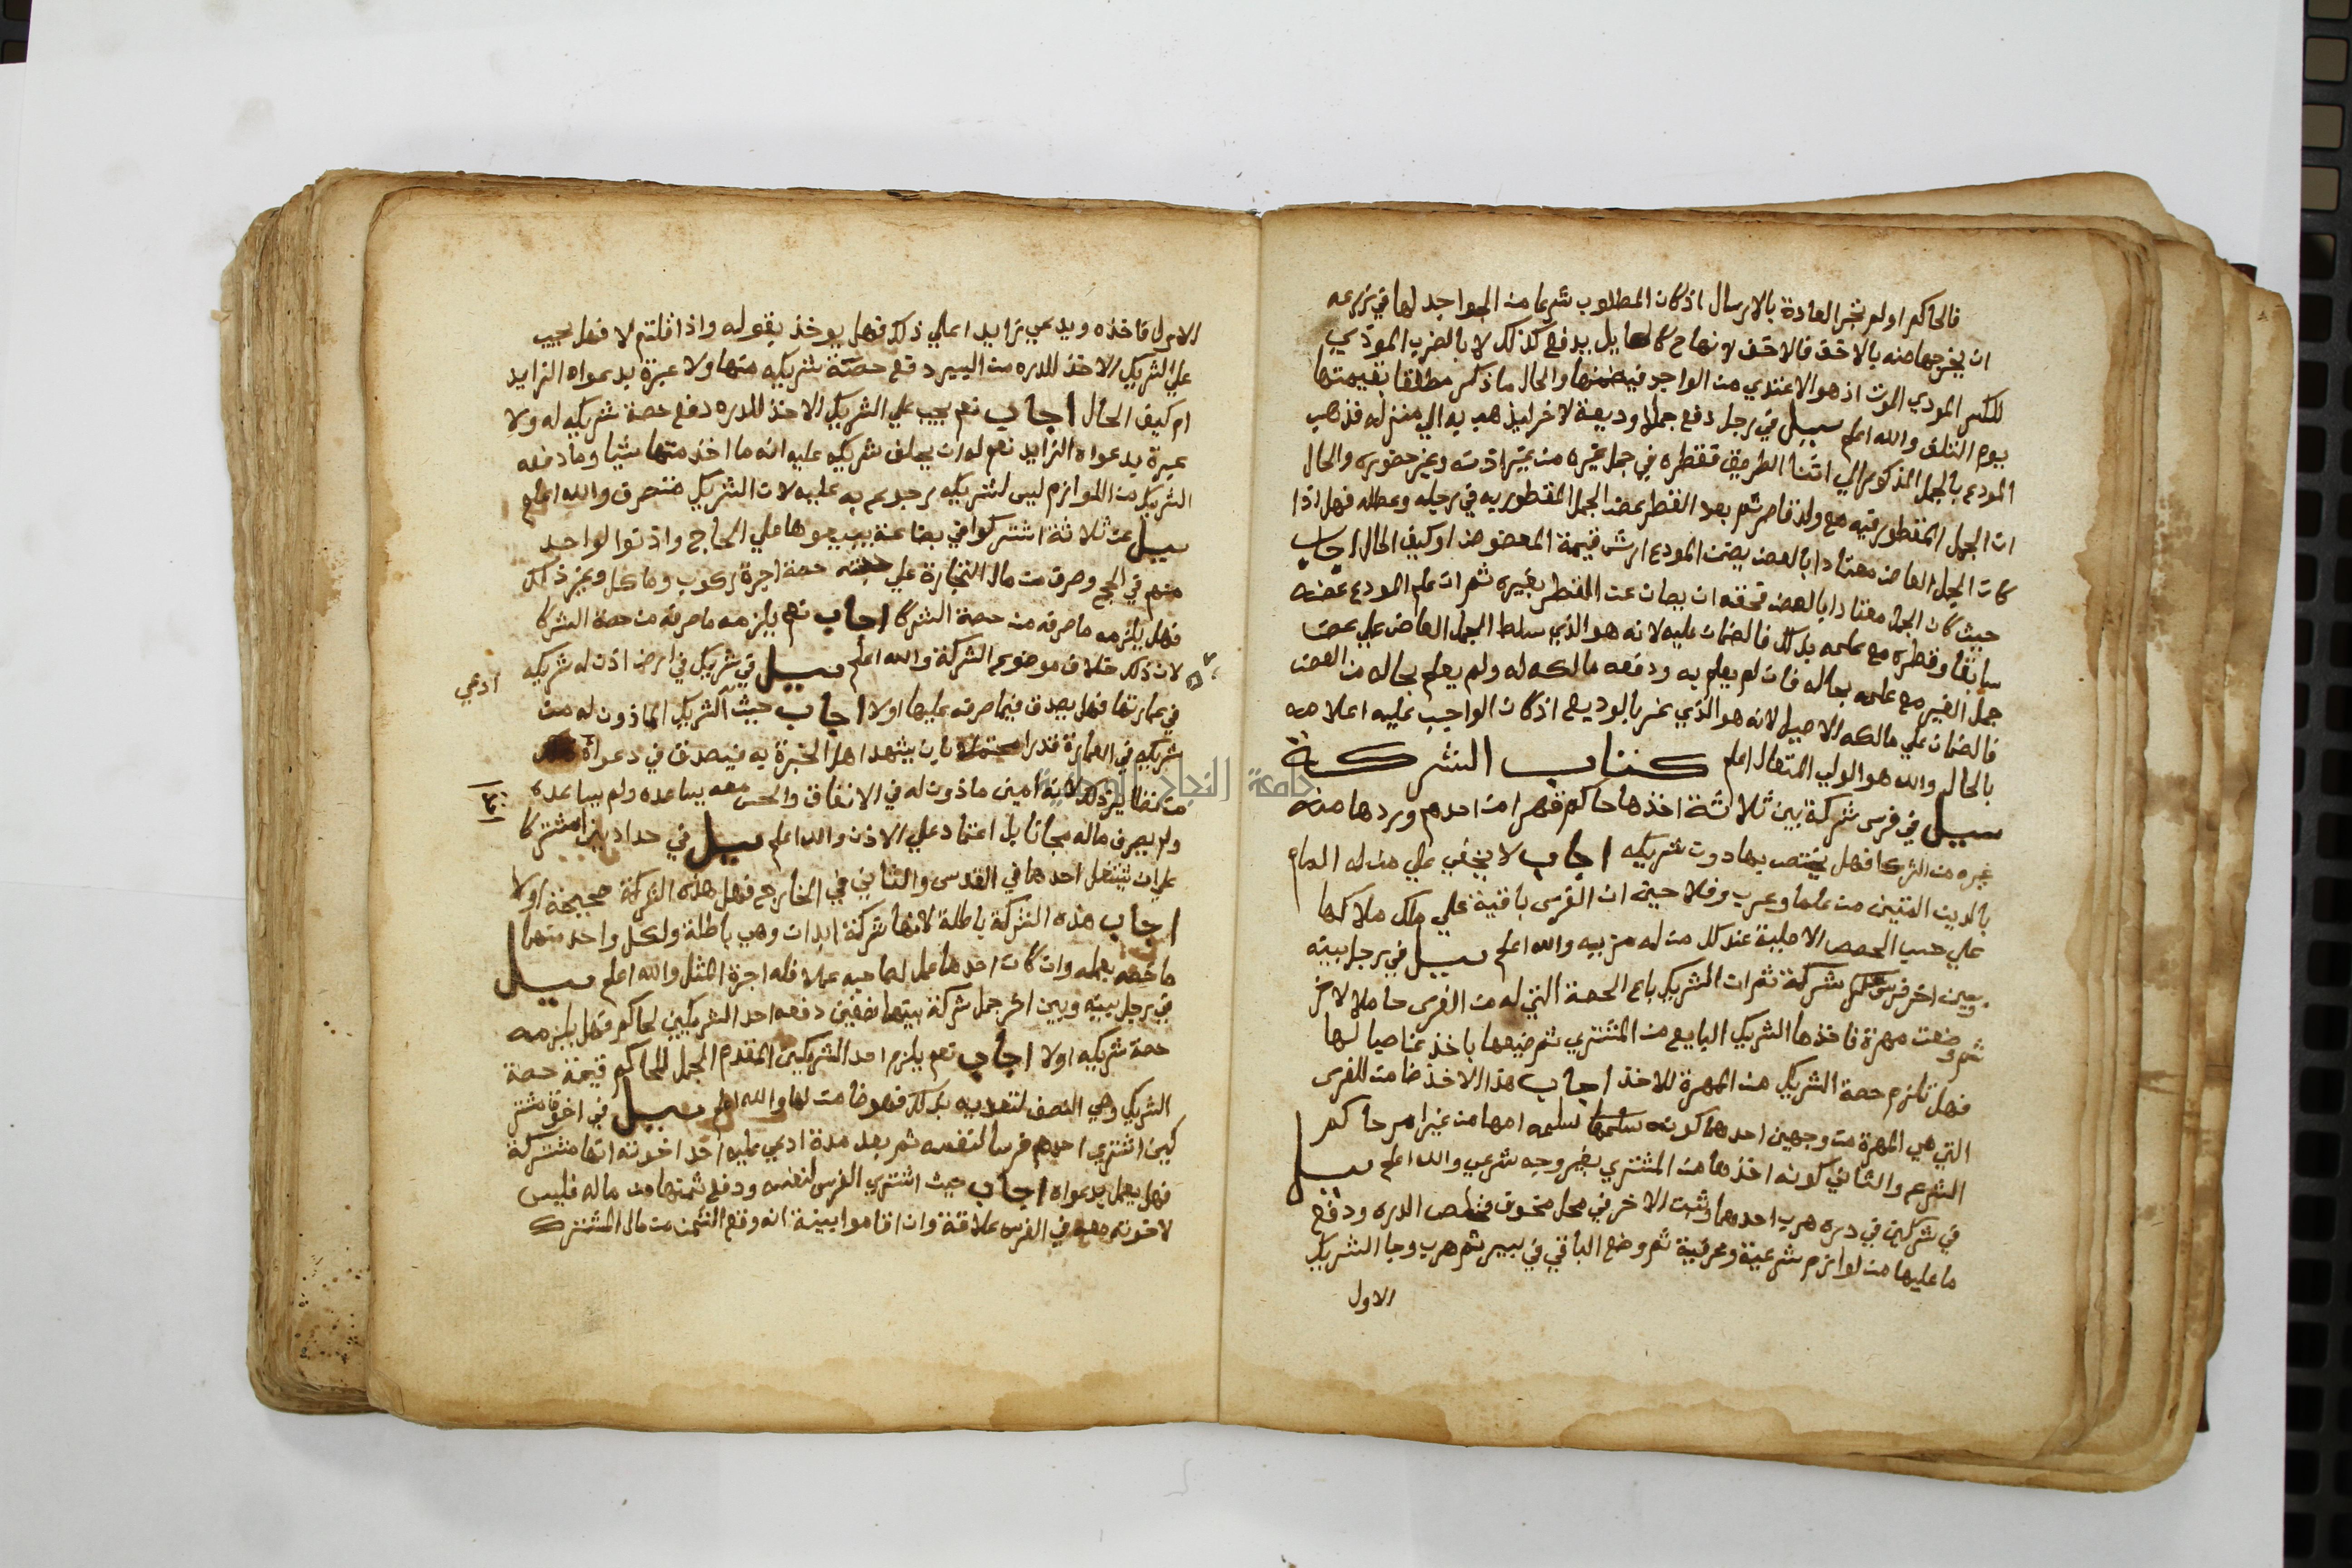 فالحاكم او لم تجر العادة بالارسال اذ كان المطلوب شرعا من الجواجد لها في زرعه
ان يخرجها منه بالاخف فالاخف لانها ح كالصايل يدفع كذلك لا بالضرب الموذي
للكسر المودي الموت اذ هو الاعتدي من الواجد فيضمنها والحال ما ذكر مطلقا بقيمتها
يوم التلف والله اعلم سيل في رجل دفع جملا وديعة لاخر ليذهب به الي منزله فذهب
المودع بالجمل المذكور الي اثنا الطريق فقطره في جمل غيره من غير اذنه وغير حضوره والحال
ان الجمل المقطور فيه مع ولد قاصر ثم بعد القطر عض الجمل المقطور به في رجله وعطله فهل اذا
كان الجمل العاض معتادا بالعض يضمن المودع ارش قيمة المعضوض او كيف الحال اجاب
حيث كان الجمل معتادا بالعض فحقه ان يصان عن القطر بغيره ثم ان علم المودع عضه
سابقا وقطره مع علمه بذلك فالضمان عليه لانه هو الذي سلط الجمل العاض علي عض
جمل الغير مع علمه بحاله فان لم يعلم به ودفعه مالكه له ولم يعلم بحاله من العض
فالضمان علي مالكه الاصيل لانه هو الذي غر بالوديع اذ كان الواجب عليه اعلامه
بالحال والله هو الولي المتعال اعلم كتاب الشركة
سيل في فرس شركة بين ثلاثة اخذها حاكم قهرا من احدهم وردها منه
غيره من الشركا فهل يختص بها دون شريكيه اجاب لا يخفي علي من له المام
بالدين المتين من علما وعرب وفلاحين ان الفرس باقية علي ملك ملاكها
علي حسب الحصص الاصلية عند كل من له مزيه والله اعلم سيل في رجل بينه
وبين اخر فرس شركة ثم ان الشريك باع الحصة التي له من الفرس حاملا لاخر
ثم وضعت مهرة فاخذها الشريك البايع من المشتري ثم ضيعها باخذ غاصبا لها
فهل تلزم حصة الشريك من المهرة للاخذ اجاب هذا الاخذ ضامن للفرس
التي هي المهرة من وجهين احدهما كونه سلمه امها من غير امر حاكم
الشرع والثاني كونه اخذها من المشتري بغير وجه شرعي والله اعلم سيل
في شركين في دره هرب احدهما وثبت الاخر في محل مخوف فخلص الدره ودفع
ما عليها من لوازم شرعية وعرفية ثم وضع الباقي في بيير ثم هرب وجا الشريك
الاول
الاول فاخذه ويدعي تزايد اعلي ذلك فهل يوخذ بقوله واذا قلتم لا فهل يجب
علي الشريك الاخذ للدره من البيير دفع حصة شريكه منها ولا عبرة بدعواه التزايد
ام كيف الحال اجاب نعم يجب علي الشريك الاخذ للدره دفع حصة شريكه له ولا
عبرة بدعواه التزايد نعم له ان يحلف شريكه عليه انه ما اخذ منها شيا وما دفعه
الشريك من اللوازم ليس لشريكه رجوع به عليه لان الشريك متصرف والله اعلم
سيل عن ثلاثة اشتركوا في بضاعة يبيعوها علي الحاج واذنوا لواحد
منهم في الحج وصرف من مال التجارة علي حصة اجرة ركوب وماكل وغير ذلك
فهل يلزمه ما صرفه من حصة الشركا اجاب نعم يلزمه ما صرفه من حصة الشركا
لان ذلك خلاف موضوع الشركة والله اعلم سيل في شريك في ارض اذن له شريكه
ادعي
في عمارتها فهل يصدق فيما صرفه عليها اولا اجاب حيث الشريك الماذون له من
شريكه في العمارة قدرا محتملا بان يشهد اهل الخبرة به فيصدق في دعواه
من نظاير ذلك لانه امين ماذون له في الانفاق والحس معه يساعده ولم يساعده
ولم يصرف ماله مجانا بل اعتماد علي الاذن والله اعلم سيل في حدادين اشتركا
علي ان يشتغل احدهما في القدس والثاني في الخارج فهل هذه الشركة صحيحة اولا
اجاب هذه الشركة باطلة لانها شركة ابدان وهي باطلة ولكل واحد منهما
ما خصه بعمله وان كان احدهما عمل لصاحبه عملا فله اجرة المثل والله اعلم سيل
في رجل بينه وبين اخر جمل شركة بينهما نصفين دفعه احد الشريكين لحاكم فهل يلزمه
حصة شريكه اولا اجاب نعم يلزم احد الشريكين المقدم الجمل للحاكم قيمة حصة
الشريك وهي النصف لتعديه بذلك فهو ضامن لها والله اعلم سيل في اخوة مشتر
كين اشتري احدهم فرسا لنفسه ثم بعد مدة ادعي عليه احد اخوته انها مشتركة
فهل يعمل بدعواه اجاب حيث اشتري الفرس لنفسه ودفع ثمنها من ماله فليس
لاخوته معه في الفرس علاقة وان اقاموا بينة انه وقع الثمن من مال المشترك
جامعة النجاح الوطنية